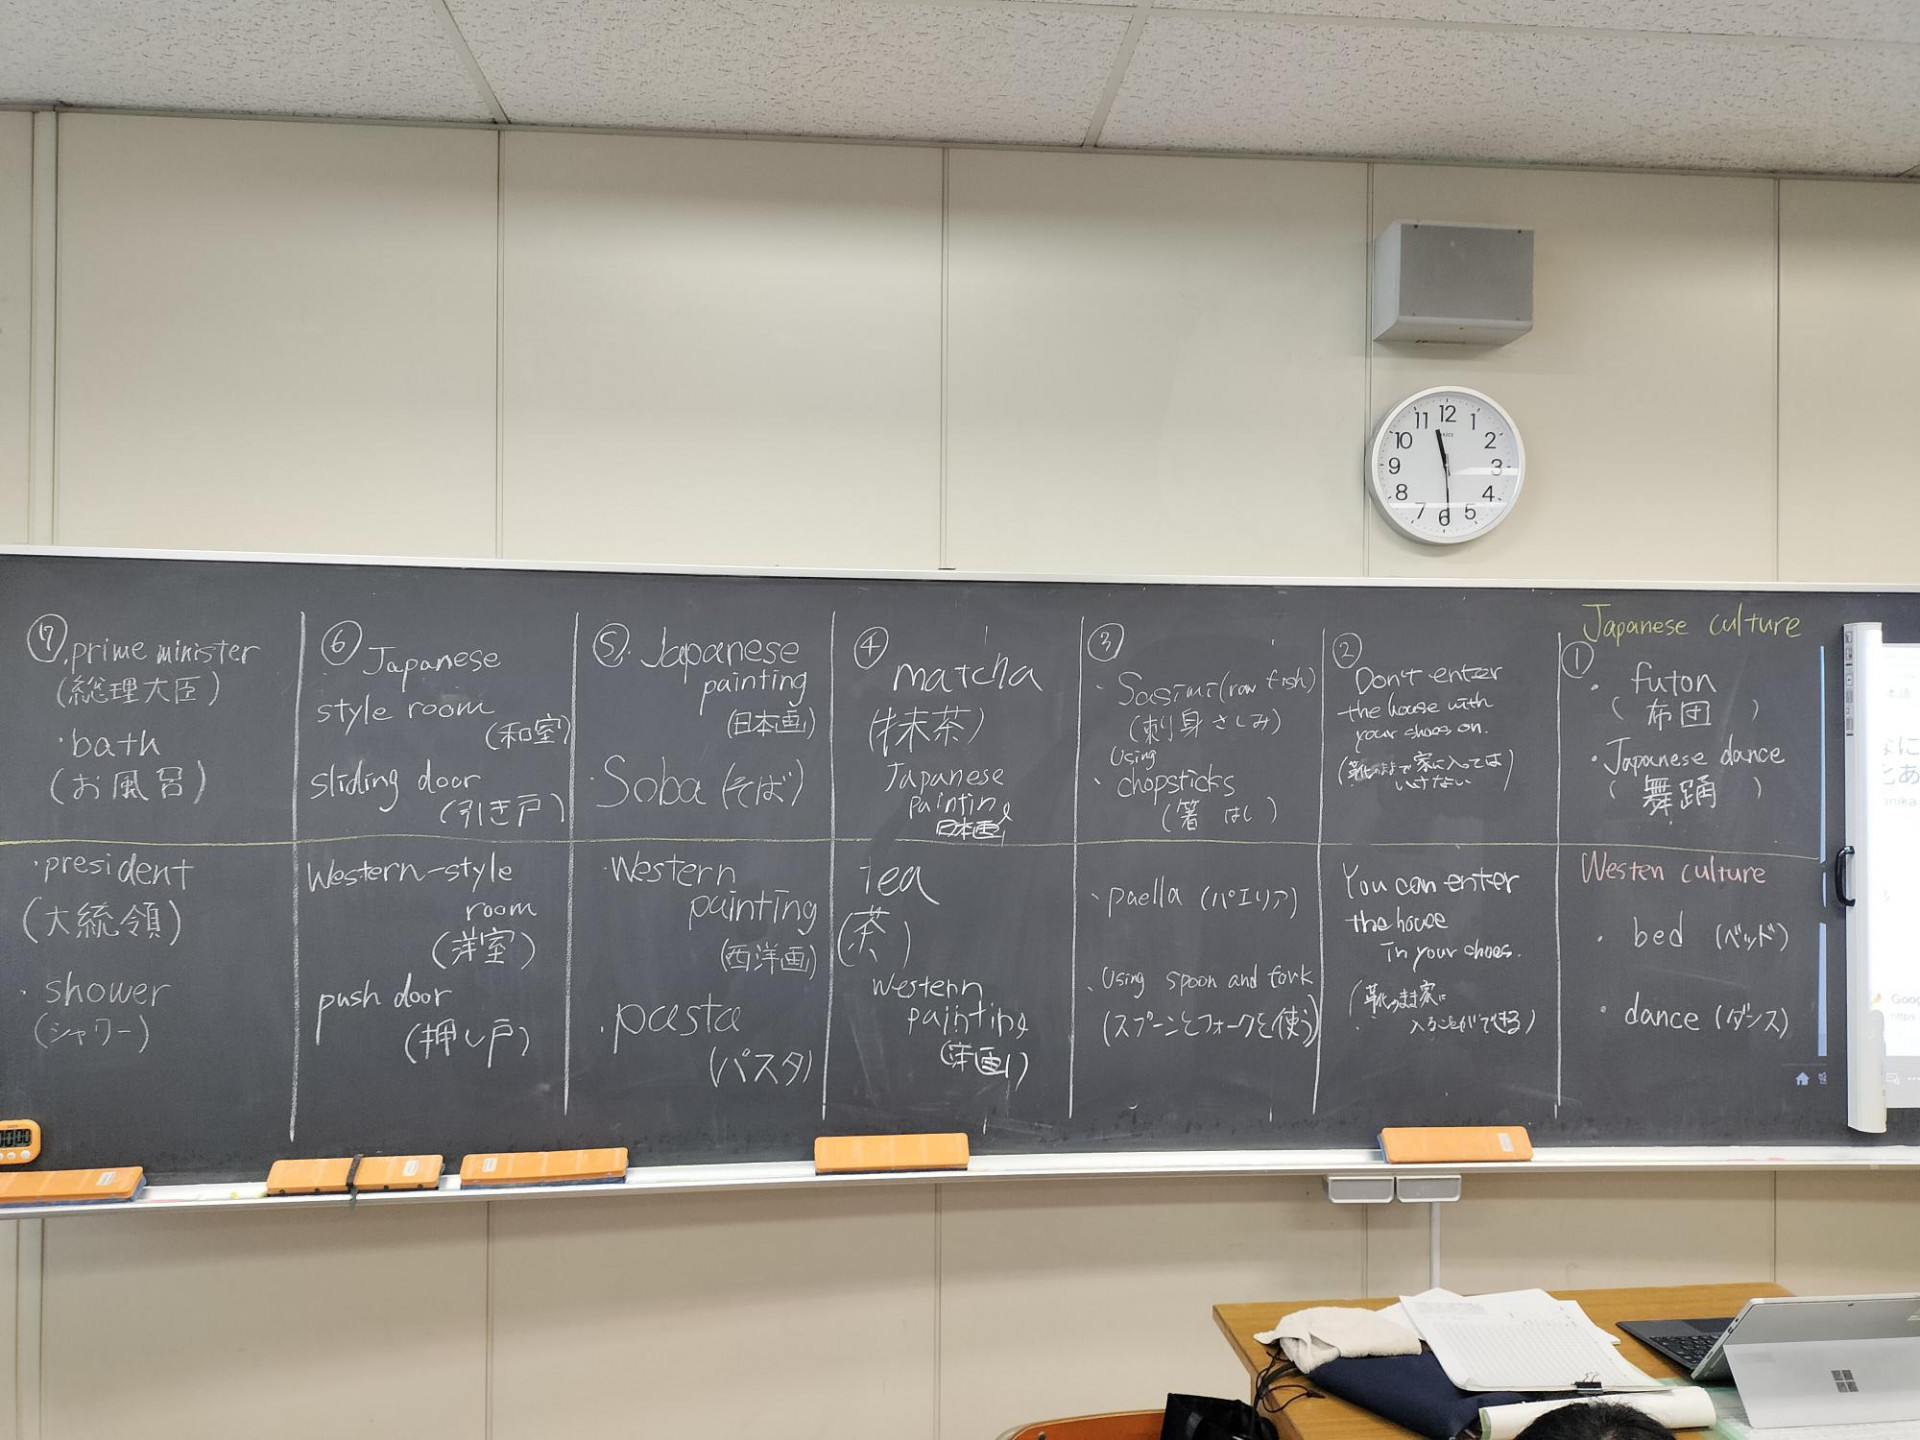 Japanese culture
①
・futon
(布団)
・Japanese dance
(舞踊)
Westen culture
・bed (ベッド)
・dance (ダンス)
②
Don't enter
the house with
your shoes on.
(靴のままで家に入っては
いけない)
You can enter
the house
in your shoes.
(靴のまま家に
入ることができる)
③
・Sasimi (raw fish)
(刺身 さしみ)
Using
・chopsticks
(箸 はし)
・paella (パエリア)
・Using spoon and fork
(スプーンとフォークを使う)
④
matcha
(抹茶)
Japanese
painting
日本画
tea
(茶)
Western
painting
(洋画)
⑤・Japanese
painting
(日本画)
・Soba (そば)
・Western
painting
(西洋画)
・pasta
(パスタ)
⑥ Japanese
style room
(和室)
sliding door
(引き戸)
Western-style
room
(洋室)
push door
(押し戸)
⑦・prime minister
(総理大臣)
・bath
(お風呂)
・president
(大統領)
・shower
(シャワー)
11 12 1
10 2
9 3
8 4
7 6 5